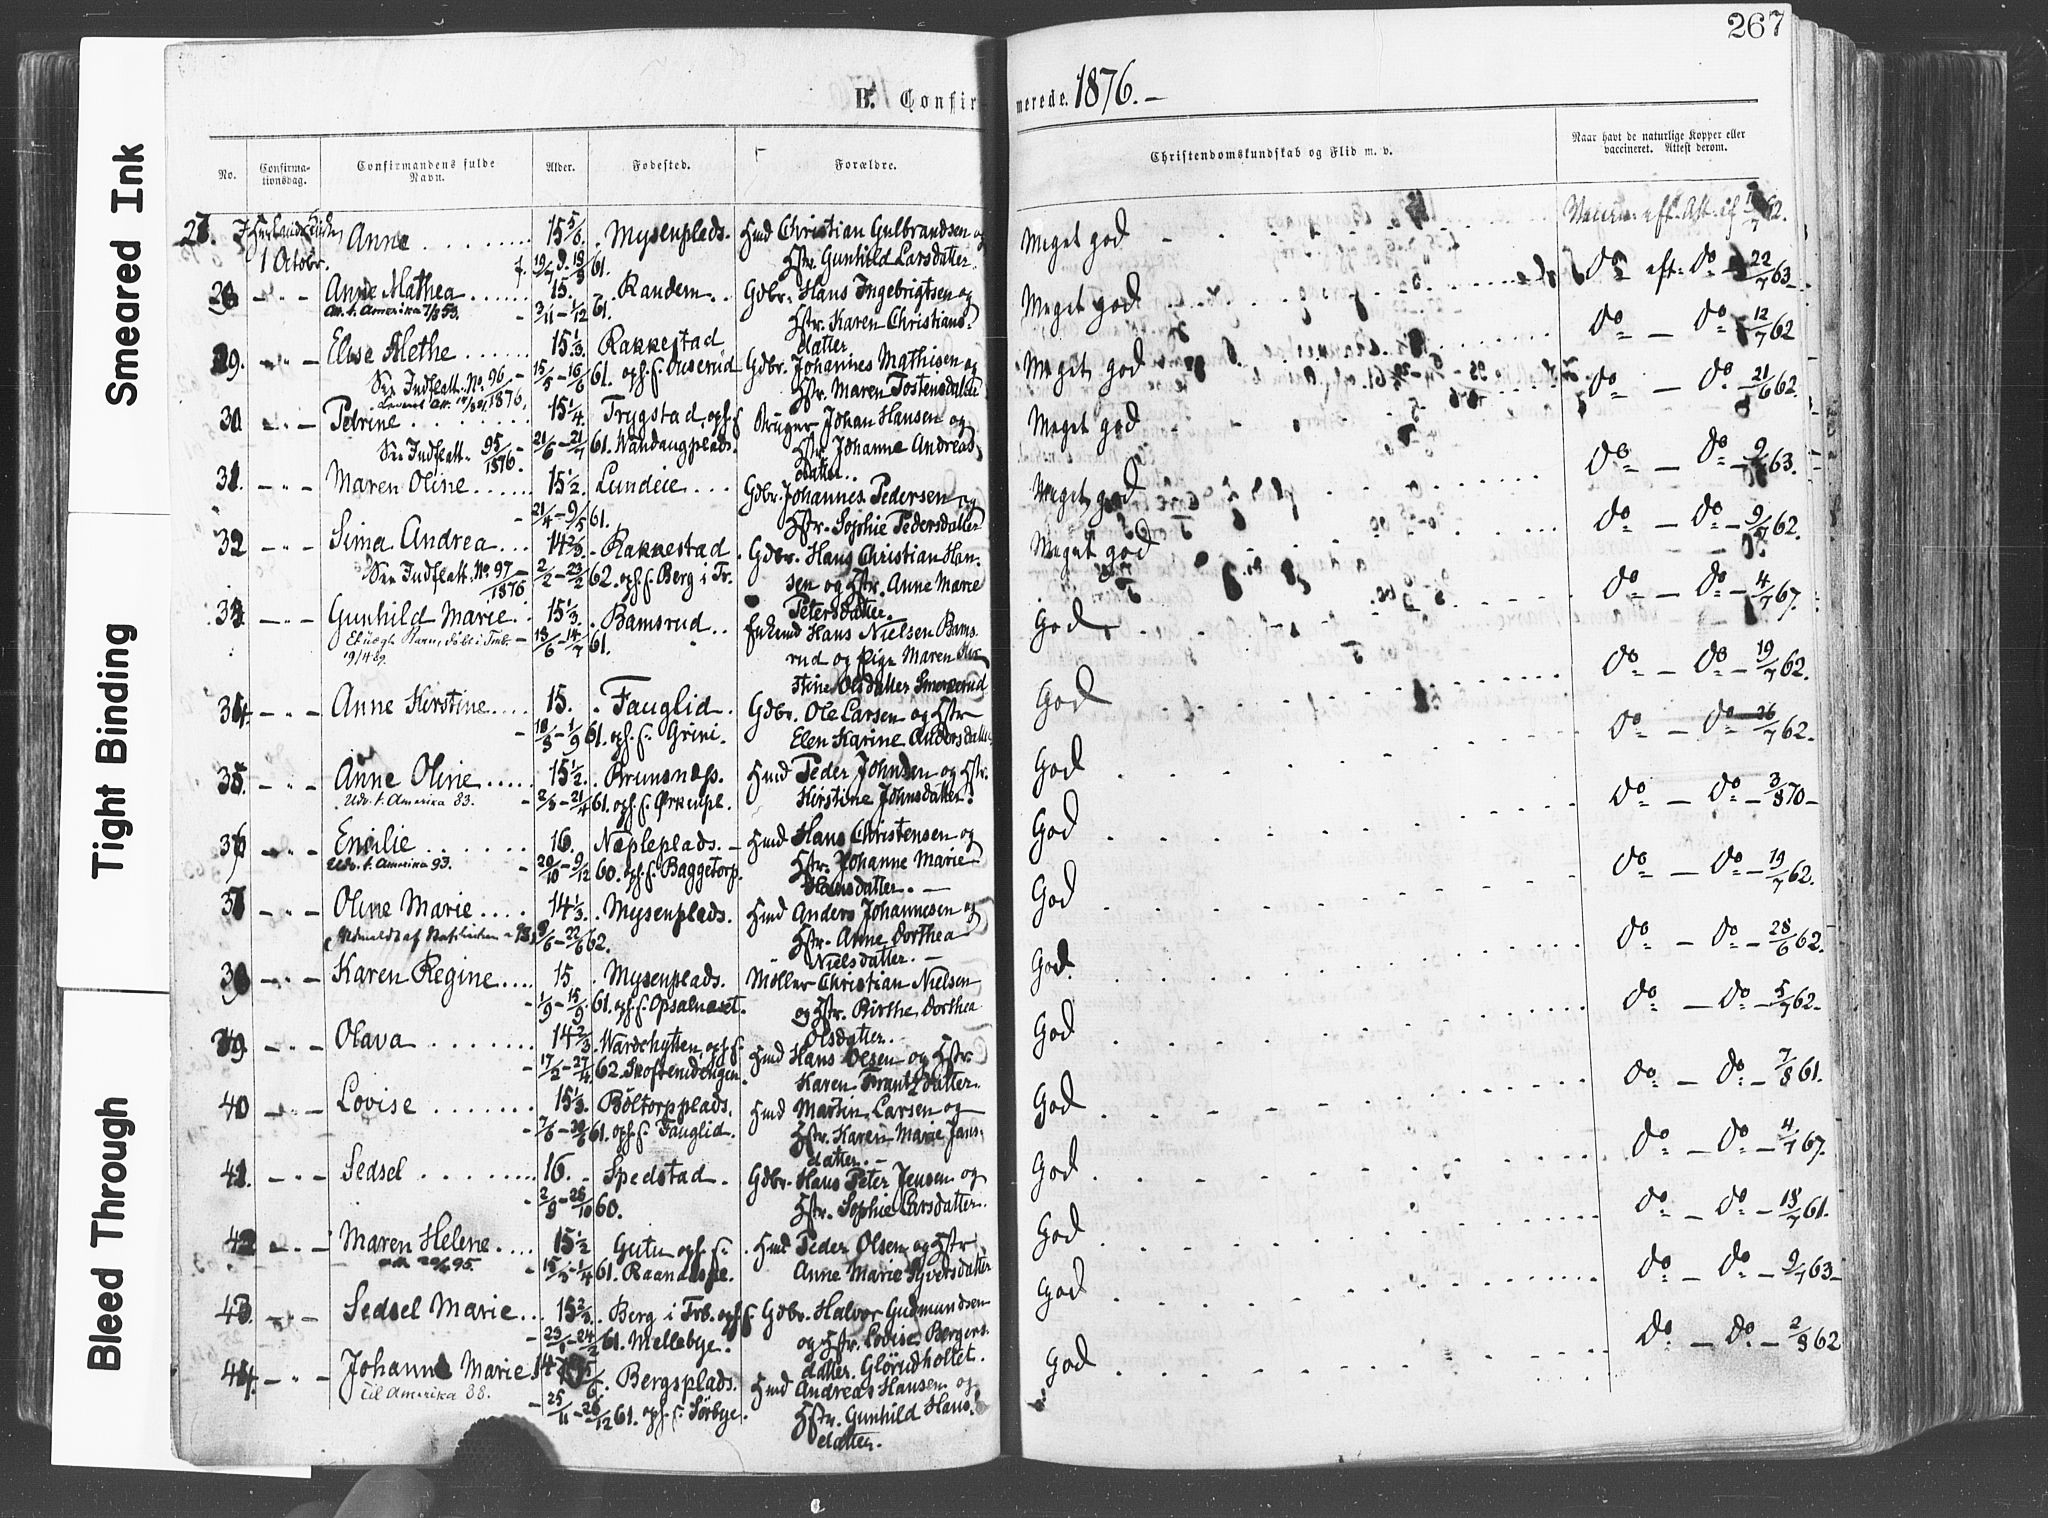 267
B. Confirmerede. 1876.
No. Confirmationsdag. Confirmandens fulde Navn. Alder. Fødested. Forældre. Christendomskundskab og Flid m. v. Naar havt de naturlige Kopper eller vaccineret. Attest derom.
Smeared Ink
Tight Binding
Bleed Through
Anne 15 5/6. Mysenplads. Hmd Christian Gulbrandsen og Meget god
1 Octobr. 19/7 61. Hstr. Gunhild Larsdatter.
Anne Mathea 15. Randem. Gdbr. Hans Ingebrigtsen og Meget god Do eft. Do 22/7 63
t. Amerika 3/11 - 1/12 61. Hstr. Karen Christiansdatter
29. Elise Alethe 15 1/3. Rakkestad Gdbr. Johannes Mathisen og Meget god Do — Do 12/7 62
Se Indflatt. No. 96/1876. 15/5 - 16/6 61. Hstr. Maren Tostensdatter
30. Petrine 15 1/4. Trygstad, opf. f. Bruger Johan Hansen og Meget god Do — Do 21/6 62.
Se Indflatt. 95/1876. 21/6 - 21/7 61. Hstr. Johanne Andreasdatter.
31. Maren Oline 15 1/2. Lundeie Gdbr. Johannes Pedersen og Meget god Do — Do 9/7 63.
21/4 - 9/5 61. Hstr. Sophie Pedersdatter
32 Sima Andrea 14 2/3. Rakkestad Gdbr. Hans Christian Han- Meget god Do — Do 9/7 62.
Se Indflatt. No. 97/1876 2/2 - 23/2 62. opf. f. Berg i Tr. sen og Hstr. Anne Marie Petersdatter.
33 Gunhild Marie 15 1/3. Bamsrud Enkemd Hans Nielsen Bams- God Do — Do 4/7 67.
19/4 89. 13/6 - 14/7 61. rud og Pige Maren Kir-
stine Olsdatter
34. Anne Kirstine 15. Fauglid. Gdbr. Ole Larsen og Hstr God Do — Do 19/7 62.
18/8 - 1/9 61. opf. f. Grini. Elen Karine Andersdatter
35. Anne Oline 15 1/2. Brunsnæss. Hmd Peder Johnsen og Hstr. God Do — Do 26/7 62.
Udv. t. Amerika 83. 2/3 - 21/4 61. opf. f. Ørkenpl. Kirstine Johnsdatter.
36 Emilie 16. Næpleplads. Hmd Hans Christensen og God Do — Do 3/8 70
Udv. t. Amerika 93. 20/10 - 9/12 60. opf. f. Baggetorp. Hstr. Johanne Marie
Hansdatter.
37 Oline Marie 14 1/3. Mysenplads. Hmd Anders Johannesen og God Do — Do 19/7 62.
9/6 - 22/6 62. Hstr. Anne Dorthea
Nielsdatter.
38 Karen Regine 15 Mysenplads. Møller Christian Nielsen God. Do — Do 28/6 62.
1/9 - 15/9 61. og Hstr. Birthe Dorthea
Olsdatter.
39. Olava 14 2/3. opf. f. Hmd Hans Olsen og Hstr. God Do — Do 5/7 62.
17/2 - 27/4 62. Karen Frantzdatter.
40 Lovise 15 1/3. Bøltorpplads. Hmd Martin Larsen og God Do — Do 7/8 61.
61. opf. f. Fauglid. Hstr. Karen Marie Jans-
datter.
41. Sedsel 16. Spedstad. Gdbr. Hans Peter Jensen og God Do — Do 4/7 67.
2/9 - 28/10 60. Hstr. Sophie Larsdatter.
42 Maren Helene 15 1/2 opf. f. Hmd Peder Olsen og Hstr God Do — Do 18/7 61.
15/3 - 1/4 61. Anne Marie Syversdatter
43 Sedsel Marie 15 2/3. Berg i Trb. opf. f. Gdbr. Halvor Gudmundsen God Do — Do 9/7 63
23/1 - 24/2 61. Mellebye. og Hstr. Lovise Bergers-
datter.
44. Johanne Marie 14 5/6. Bergsplads. Hmd Andreas Hansen og God Do — Do 2/8 62
Til Amerika 88. 25/11 - 26/12 61. opf. f. Sørbye. Hstr. Gunhild Hans-
datter.